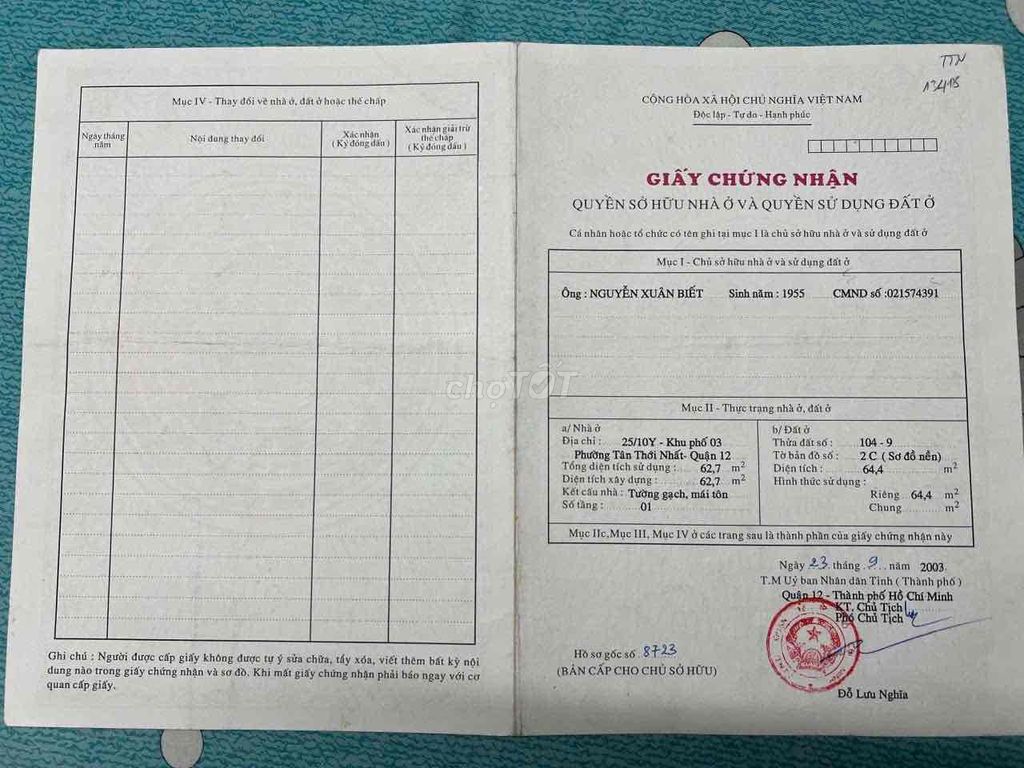 Mục IV - Thay đổi về nhà ở, đất ở hoặc thế chấp
Ngày tháng năm
Nội dung thay đổi
Xác nhận
( Ký đóng dấu )
Xác nhận giải trừ thế chấp
( Ký đóng dấu )
Ghi chú : Người được cấp giấy không được tự ý sửa chữa, tẩy xóa, viết thêm bất kỳ nội
dung nào trong giấy chứng nhận và sơ đồ. Khi mất giấy chứng nhận phải báo ngay với cơ
quan cấp giấy.
TTN
CỘNG HÒA XÃ HỘI CHỦ NGHĨA VIỆT NAM
Độc lập - Tự do - Hạnh phúc
GIẤY CHỨNG NHẬN
QUYỀN SỞ HỮU NHÀ Ở VÀ QUYỀN SỬ DỤNG ĐẤT Ở
Cá nhân hoặc tổ chức có tên ghi tại mục I là chủ sở hữu nhà ở và sử dụng đất ở
Mục I - Chủ sở hữu nhà ở và sử dụng đất ở
Ông : NGUYỄN XUÂN BIẾT Sinh năm : 1955 CMND số :021574391
chợTỐT
Mục II - Thực trạng nhà ở, đất ở
a/ Nhà ở
Địa chỉ : 25/10Y - Khu phố 03
Phường Tân Thới Nhất- Quận 12
Tổng diện tích sử dụng : 62,7 m2
Diện tích xây dựng : 62,7 m2
Kết cấu nhà : Tường gạch, mái tôn
Số tầng : 01
b/ Đất ở
Thửa đất số : 104 - 9
Tờ bản đồ số : 2 C ( Sơ đồ nền)
Diện tích : 64,4 m2
Hình thức sử dụng :
Riêng 64,4 m2
Chung m2
Mục IIc,Mục III, Mục IV ở các trang sau là thành phần của giấy chứng nhận này
Ngày 23 tháng 9 năm 2003
T.M Uỷ ban Nhân dân Tỉnh ( Thành phố )
Quận 12 - Thành phố Hồ Chí Minh
KT. Chủ Tịch
Phó Chủ Tịch
Hồ sơ gốc số 8723
(BẢN CẤP CHO CHỦ SỞ HỮU)
Đỗ Lưu Nghĩa